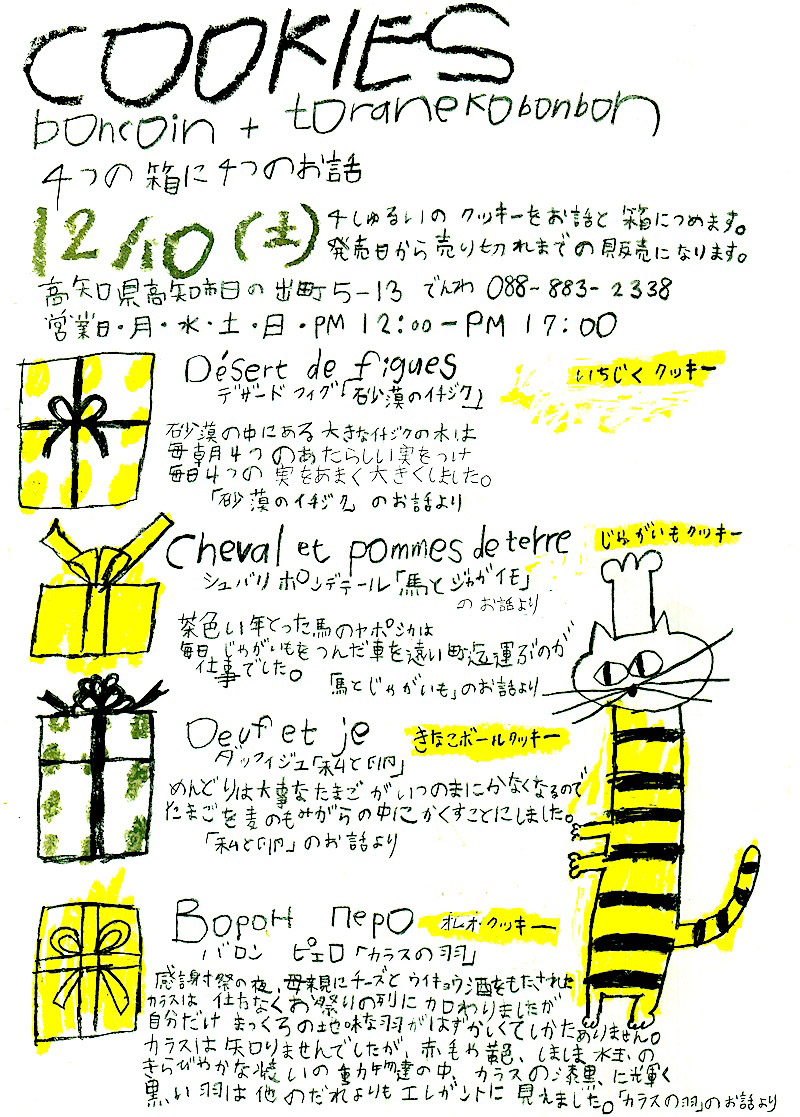 COOKIES
boncoin + toranekobonbon
4つの箱に4つのお話
12/10(土)
4しゅるいの クッキーをお話と 箱につめます。
発売日から売り切れまでの販売になります。
高知県高知市日の出町5-13 でんわ 088-883-2338
営業日・月・水・土・日・PM 12:00-PM 17:00
Désert de figues
いちじくクッキー
デザード フィグ「砂漠のイチジク」
砂漠の中にある 大きなイチジクの木は
毎朝4つのあたらしい実をつけ
毎日4つの 実をあまく大きくしました。
「砂漠のイチジク」のお話より
Cheval et pommes de terre
じゃがいもクッキー
シュバリ ポンデテール「馬とジャガイモ」
のお話より
茶色い年とった馬のヤポシカは
毎日、じゃがいもをつんだ車を遠い町迄運ぶのが
仕事でした。
「馬とじゃがいも」のお話より
Oeuf et je
きなこボールクッキー
ダッフィジュ「私と卵」
めんどりは大事なたまごがいつのまにかなくなるので
たまごを麦のもみがらの中にかくすことにしました。
「私と卵」のお話より
Ворон перо
オレオクッキー
バロン ピェロ「カラスの羽」
感謝祭の夜、母親にチーズとウイキョウ酒をもたされた
カラスは 仕方なくお祭りの列に加わりましたが
自分だけ まっくろの地味な羽がはずかしくてしかたありません。
カラスは知りませんでしたが、赤毛や黄色、しましま水玉の
きらびやかな装いの動物達の中、カラスの漆黒に光輝く
黒い羽は他のだれよりもエレガントに 見えました。「カラスの羽」のお話より